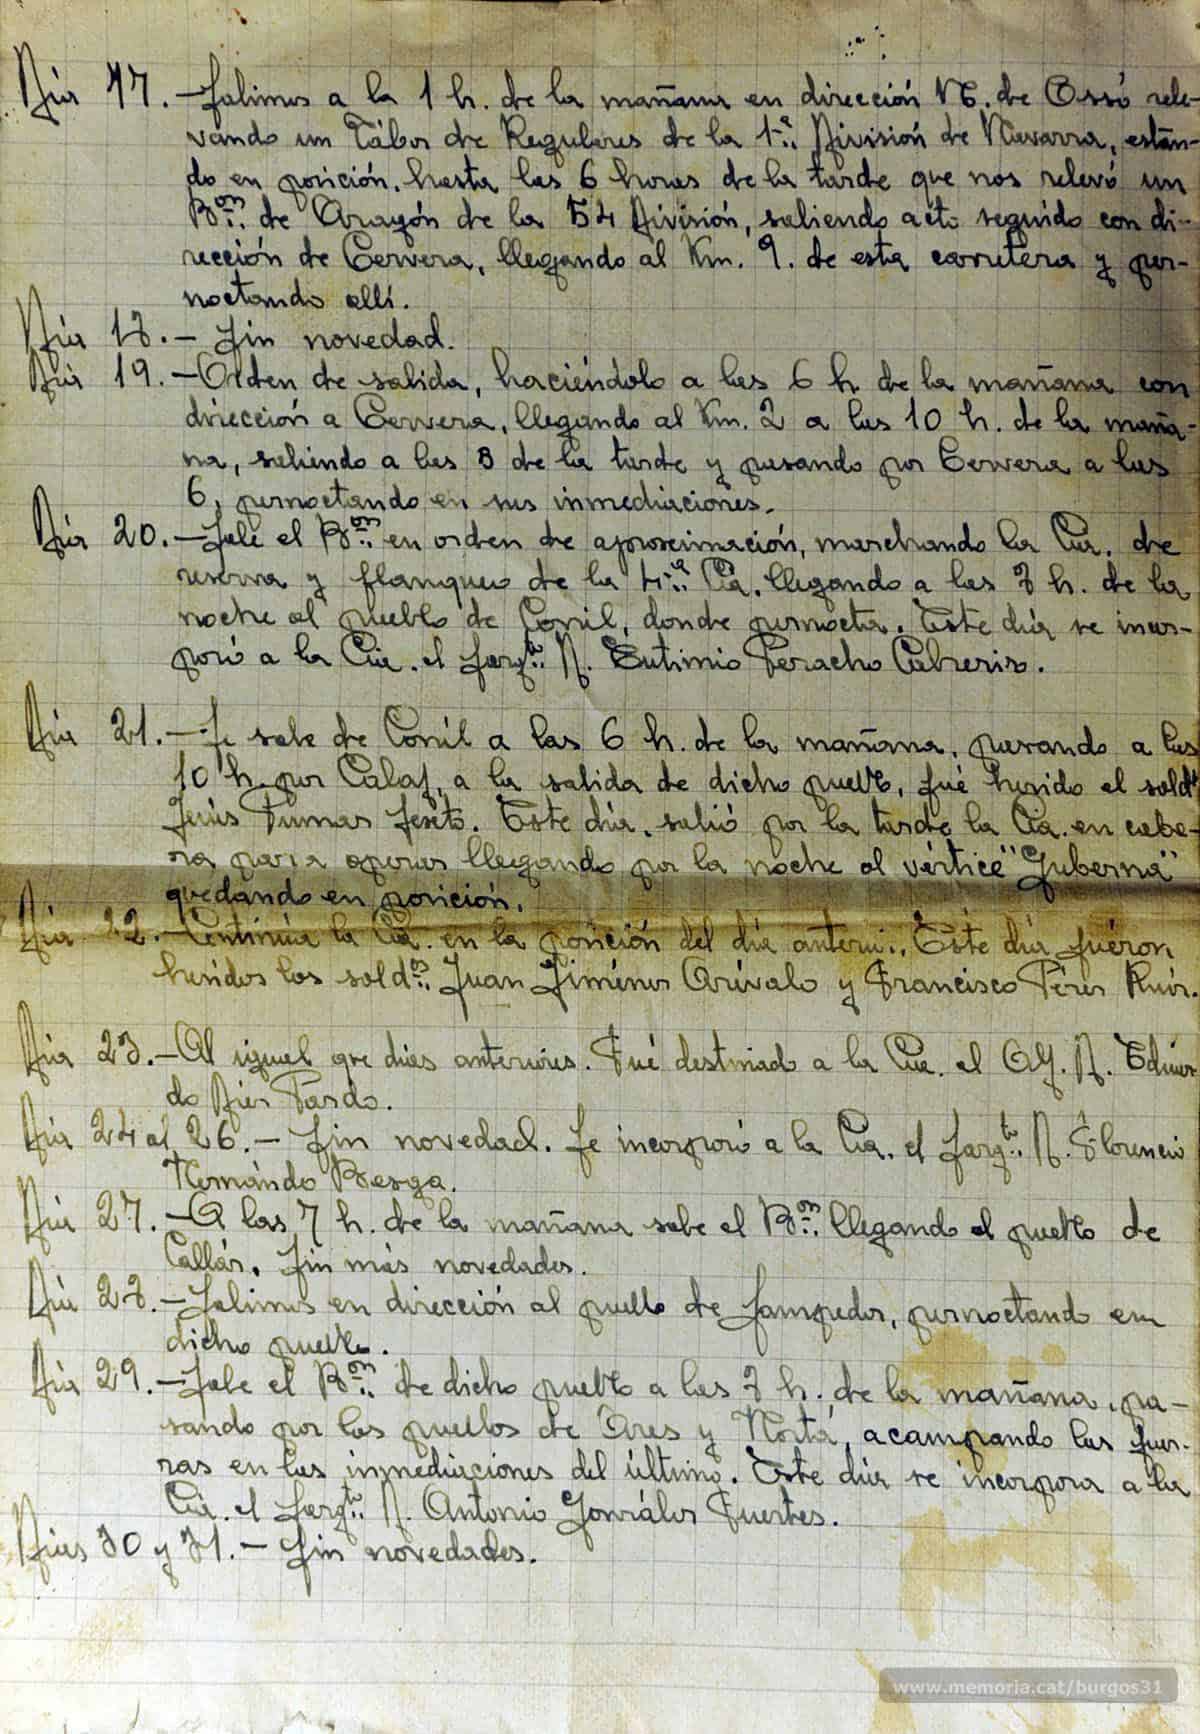 Día 17.—Salimos a la 1 h. de la mañana en dirección N. de Ossó rele-
vando un Tábor de Regulares de la 1ª. División de Navarra, están-
do en posición, hasta las 6 horas de la tarde que nos relevó un
Bon. de Aragón de la 54 División, saliendo acto seguido con di-
rección de Cervera, llegando al Km. 9. de esta carretera y per-
noctando allí.
Día 18.— Sin novedad.
Día 19.—Orden de salida, haciéndolo a las 6 h de la mañana con
dirección a Cervera, llegando al Km. 2 a las 10 h. de la maña-
na, saliendo a las 3 de la tarde y pasando por Cervera a las
6, pernoctando en sus inmediaciones.
Día 20.—Sale el Bon. en orden de aproximación, marchando la Cía. de
reserva y flanqueo de la 4ª. Cía. llegando a las 8 h. de la
noche al pueblo de Conil, donde pernocta. Este día se incor-
poró a la Cía. el Sargto. D. Eutimio Peracho Cabreriz.
Día 21.—Se sale de Conil a las 6 h. de la mañana, pasando a las
10 h. por Calaf, a la salida de dicho pueblo, fué herido el soldº
Jesús Pumas. Este día, salió por la tarde la Cía. en cabe-
za para operar llegando por la noche al vértice "Guberna"
quedando en posición.
Día 22.—Continúa la Cía. en la posición del día anterior. Este día fuéron
heridos los soldos. Juan Jiménez Arévalo y Francisco Pérez Ruiz.
Día 23.—Al igual que días anteriores. Fué destinado a la Cía. el Of. D. Eduar-
do Díez Pardo.
Día 24 al 26.— Sin novedad. Se incorporó a la Cía. el Sargto. D. Florencio
Hernándo Berga.
Día 27.—A las 7 h. de la mañana sale el Bon. llegando al pueblo de
Callús. Sin más novedades.
Día 28.—Salimos en dirección al pueblo de Sampedor, pernoctando en
dicho pueblo.
Día 29.—Sale el Bon. de dicho pueblo a las 8 h. de la mañana, pa-
sando por los pueblos de Ares y Hortá, acampando las fuer-
zas en las inmediaciones del último. Este día se incorpora a la
Cía. el Sargto. D. Antonio González Fuertes.
Días 30 y 31.— Sin novedades.
www.memoria.cat/burgos31